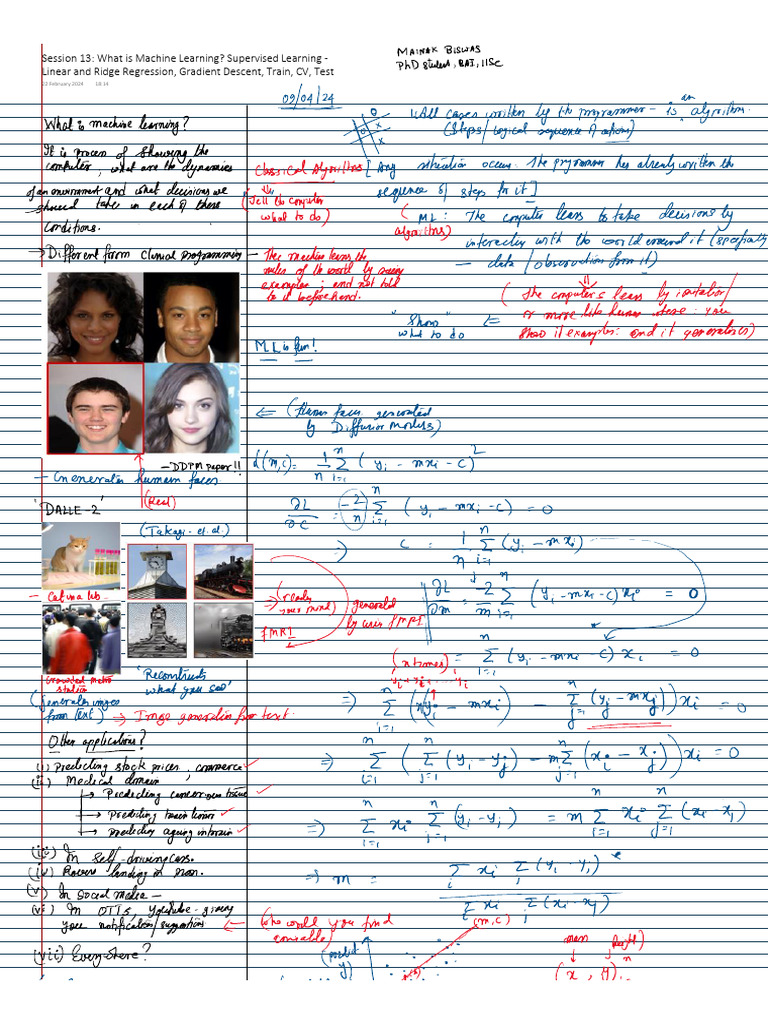 Session 13: What is Machine Learning? Supervised Learning -
Linear and Ridge Regression, Gradient Descent, Train, CV, Test
22 February 2024 18:14
MAINAK BISWAS
PhD student, BAI, IISc
09/04/24
What is machine learning?
It is process of showing the
computer, what are the dynamics
of an environment and what decisions we
should take in each of these
conditions.
→ Different from classical programming
All cases written by the programmer - is an algorithm.
(Steps/Logical sequence of actions)
Classical Algorithms [Any situation occurs. The programmer has already written the
sequence of steps for it]
(Tell the computer
what to do)
(ML: The computer learns to take decisions by
algorithms)
interacting with the world around it (specially
- data/observation from it)
- The machine learns the
rules of the world by many
examples; and not told
to it beforehand.
(The computer's learn by imitation/
or more like human : you
show it examples: and it generates)
"Show"
what to do
ML is fun!
← (Human faces generated
by Diffusion Models)
- DDPM paper!!
- Generates human faces
(Real)
'DALLE-2'
(Takagi et. al.)
- Cat in a lab -
⇒ (reading
your mind)
fMRI
generated
by using fMRI
Crowded metro
station
(generates images
from text)
⇒ Image generation from text.
'Reconstructs
what you see'
Other applications?
(i) Predicting stock prices, commerce ✓
(ii) Medical domain
→ Predicting cancer gene ✓
→ Predicting ✓
→ Predicting ageing in brain ✓
(iii) In self-driving cars.
(iv) Rovers landing on moon.
(v) In social media -
(vi) In OTTs, YouTube - giving
you notification/suggestions
← (who would you find
(vii) Everywhere?
L(m,c) = 1/n Σ_{i=1}^{n} (y_i - mx_i - c)^2
∂L/∂c = (-2/n) Σ_{i=1}^{n} (y_i - mx_i - c) = 0
⇒ c = 1/n Σ_{i=1}^{n} (y_i - mx_i)
∂L/∂m = -2/n Σ_{i=1}^{n} (y_i - mx_i - c) x_i = 0
= Σ_{i=1}^{n} (y_i - mx_i - c) x_i = 0
(n times)
y_i + y_i + ... y_i
⇒ Σ_{i=1}^{n} (n y_i - mx_i) - Σ_{j=1}^{n} (y_j - mx_j)) x_i = 0
⇒ Σ_{i=1}^{n} (Σ_{j=1}^{n} (y_i - y_j) - m Σ_{j=1}^{n} (x_i - x_j)) x_i = 0
⇒ Σ_{i=1}^{n} x_i Σ_{j=1}^{n} (y_i - y_j) = m Σ_{i=1}^{n} x_i Σ_{j=1}^{n} (x_i - x_j)
⇒ m = Σ_i x_i Σ_j (y_i - y_j) / Σ_i x_i Σ_j (x_i - x_j)
(m, c)
(predict
y)
mass
height)
(x, y)